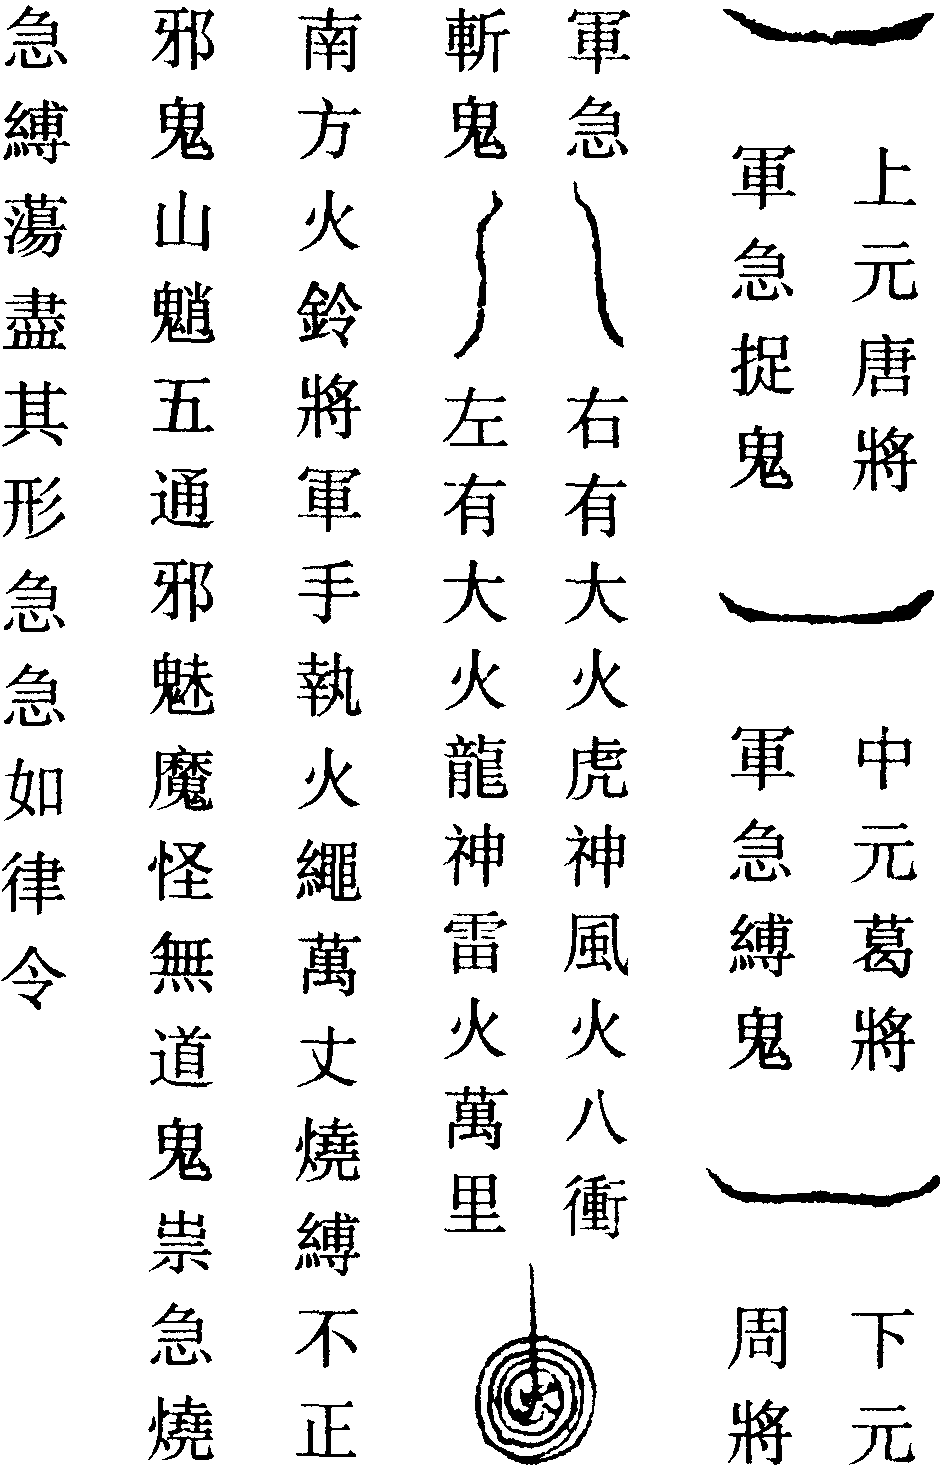 上元唐將
軍急捉鬼
中元葛將
軍急縛鬼
下元
周將
軍急
斬鬼
右有大火虎神風火八衝
左有大火龍神雷火萬里
南方火鈴將軍手執火繩萬丈燒縛不正
邪鬼山魈五通邪魅魔怪無道鬼祟急燒
急縛蕩盡其形急急如律令